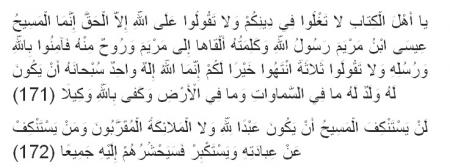 يا أَهْلَ الْكتَابِ لا تَغْلُوا في دِينِكُمْ وَلا تَقُولُوا عَلَى اللَّهِ إِلاَّ الْحَقَّ إِنَّمَا الْمَسِيحُ
عِيسَى ابْنُ مَرْيَمَ رَسُولُ اللَّهِ وَكَلِمَتُهُ أَلْقَاهَا إِلى مَرْيَمَ وَرُوحٌ مِنْهُ فَآمِنُوا بِاللَّهِ
وَرُسُلِهِ وَلا تَقُولُوا ثَلاثَةٌ انْتَهُوا خَيْرًا لَكُمْ إِنَّمَا اللَّهُ إِلهٌ واحدٌ سُبْحانَهُ أَنْ يَكُونَ
لَهُ وَلَدٌ لَهُ ما في السَّماوات وما في الْأَرْضِ وَكَفى بِاللَّهِ وَكِيلًا (171)
لَنْ يَسْتَنْكِفَ الْمَسِيحُ أَنْ يَكُونَ عَبْدًا للَّهِ وَلا الْمَلائكَةُ الْمُقَرَّبُونَ وَمَنْ يَسْتَنْكِفْ
عَنْ عِبادَتِهِ وَيَسْتَكْبِرْ فَسَيَحْشُرُهُمْ إِلَيْهِ جَمِيعًا (172)